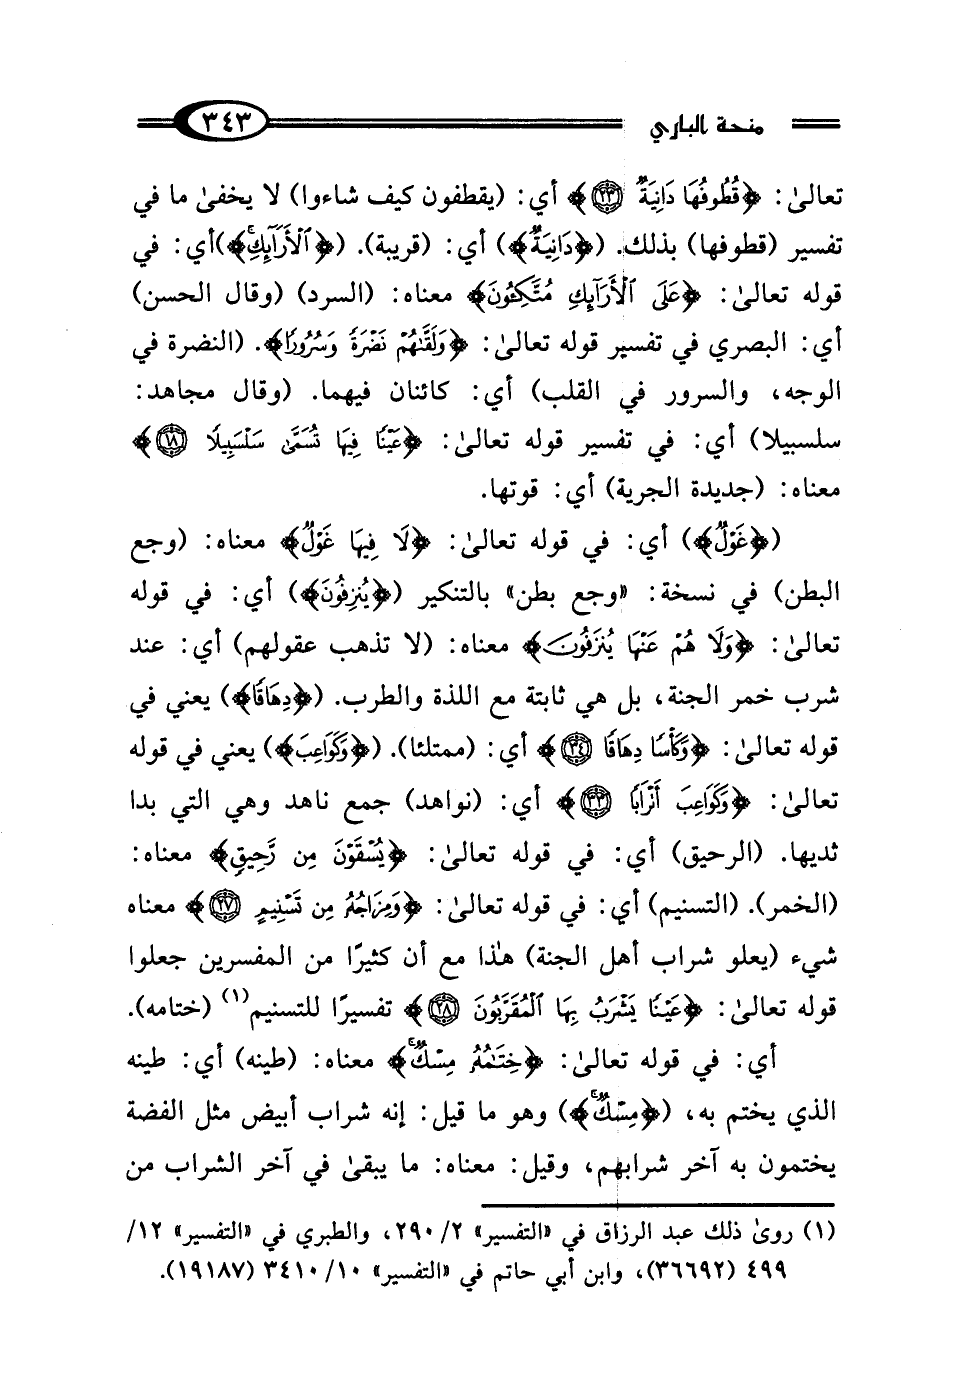 منحة الباري
٣٤٣
تعالىٰ: ﴿قُطُوفُهَا دَانِيَةٌ ٢٣﴾ أي: (يقطفون كيف شاءوا) لا يخفىٰ ما في
تفسير (قطوفها) بذلك. (﴿دَانِيَةٌ﴾) أي: (قريبة). (﴿ٱلْأَرَآئِكِ﴾)أي: في
قوله تعالىٰ: ﴿عَلَى ٱلْأَرَآئِكِ مُتَّكِـُٔونَ﴾ معناه: (السرد) (وقال الحسن)
أي: البصري في تفسير قوله تعالىٰ: ﴿وَلَقَّىٰهُمْ نَضْرَةً وَسُرُورًا﴾. (النضرة في
الوجه، والسرور في القلب) أي: كائنان فيهما. (وقال مجاهد:
سلسبيلا) أي: في تفسير قوله تعالىٰ: ﴿عَيْنًا فِيهَا تُسَمَّىٰ سَلْسَبِيلًا ١٨﴾
معناه: (جديدة الجرية) أي: قوتها.
(﴿غَوْلٌ﴾) أي: في قوله تعالىٰ: ﴿لَا فِيهَا غَوْلٌ﴾ معناه: (وجع
البطن) في نسخة: «وجع بطن» بالتنكير (﴿يُنزِفُونَ﴾) أي: في قوله
تعالىٰ: ﴿وَلَا هُمْ عَنْهَا يُنزَفُونَ﴾ معناه: (لا تذهب عقولهم) أي: عند
شرب خمر الجنة، بل هي ثابتة مع اللذة والطرب. (﴿دِهَاقًا﴾) يعني في
قوله تعالىٰ: ﴿وَكَأْسًا دِهَاقًا ٣٤﴾ أي: (ممتلئا). (﴿وَكَوَاعِبَ﴾) يعني في قوله
تعالىٰ: ﴿وَكَوَاعِبَ أَتْرَابًا ٣٣﴾ أي: (نواهد) جمع ناهد وهي التي بدا
ثديها. (الرحيق) أي: في قوله تعالىٰ: ﴿يُسْقَوْنَ مِن رَّحِيقٍ﴾ معناه:
(الخمر). (التسنيم) أي: في قوله تعالىٰ: ﴿وَمِزَاجُهُۥ مِن تَسْنِيمٍ ٢٧﴾ معناه
شيء (يعلو شراب أهل الجنة) هٰذا مع أن كثيرًا من المفسرين جعلوا
قوله تعالىٰ: ﴿عَيْنًا يَشْرَبُ بِهَا ٱلْمُقَرَّبُونَ ٢٨﴾ تفسيرًا للتسنيم(١) (ختامه).
أي: في قوله تعالىٰ: ﴿خِتَٰمُهُۥ مِسْكٌ﴾ معناه: (طينه) أي: طينه
الذي يختم به، (﴿مِسْكٌ﴾) وهو ما قيل: إنه شراب أبيض مثل الفضة
يختمون به آخر شرابهم، وقيل: معناه: ما يبقىٰ في آخر الشراب من
(١) روىٰ ذلك عبد الرزاق في «التفسير» ٢/ ٢٩٠، والطبري في «التفسير» ١٢/
٤٩٩ (٣٦٦٩٢)، وابن أبي حاتم في «التفسير» ١٠/ ٣٤١٠ (١٩١٨٧).